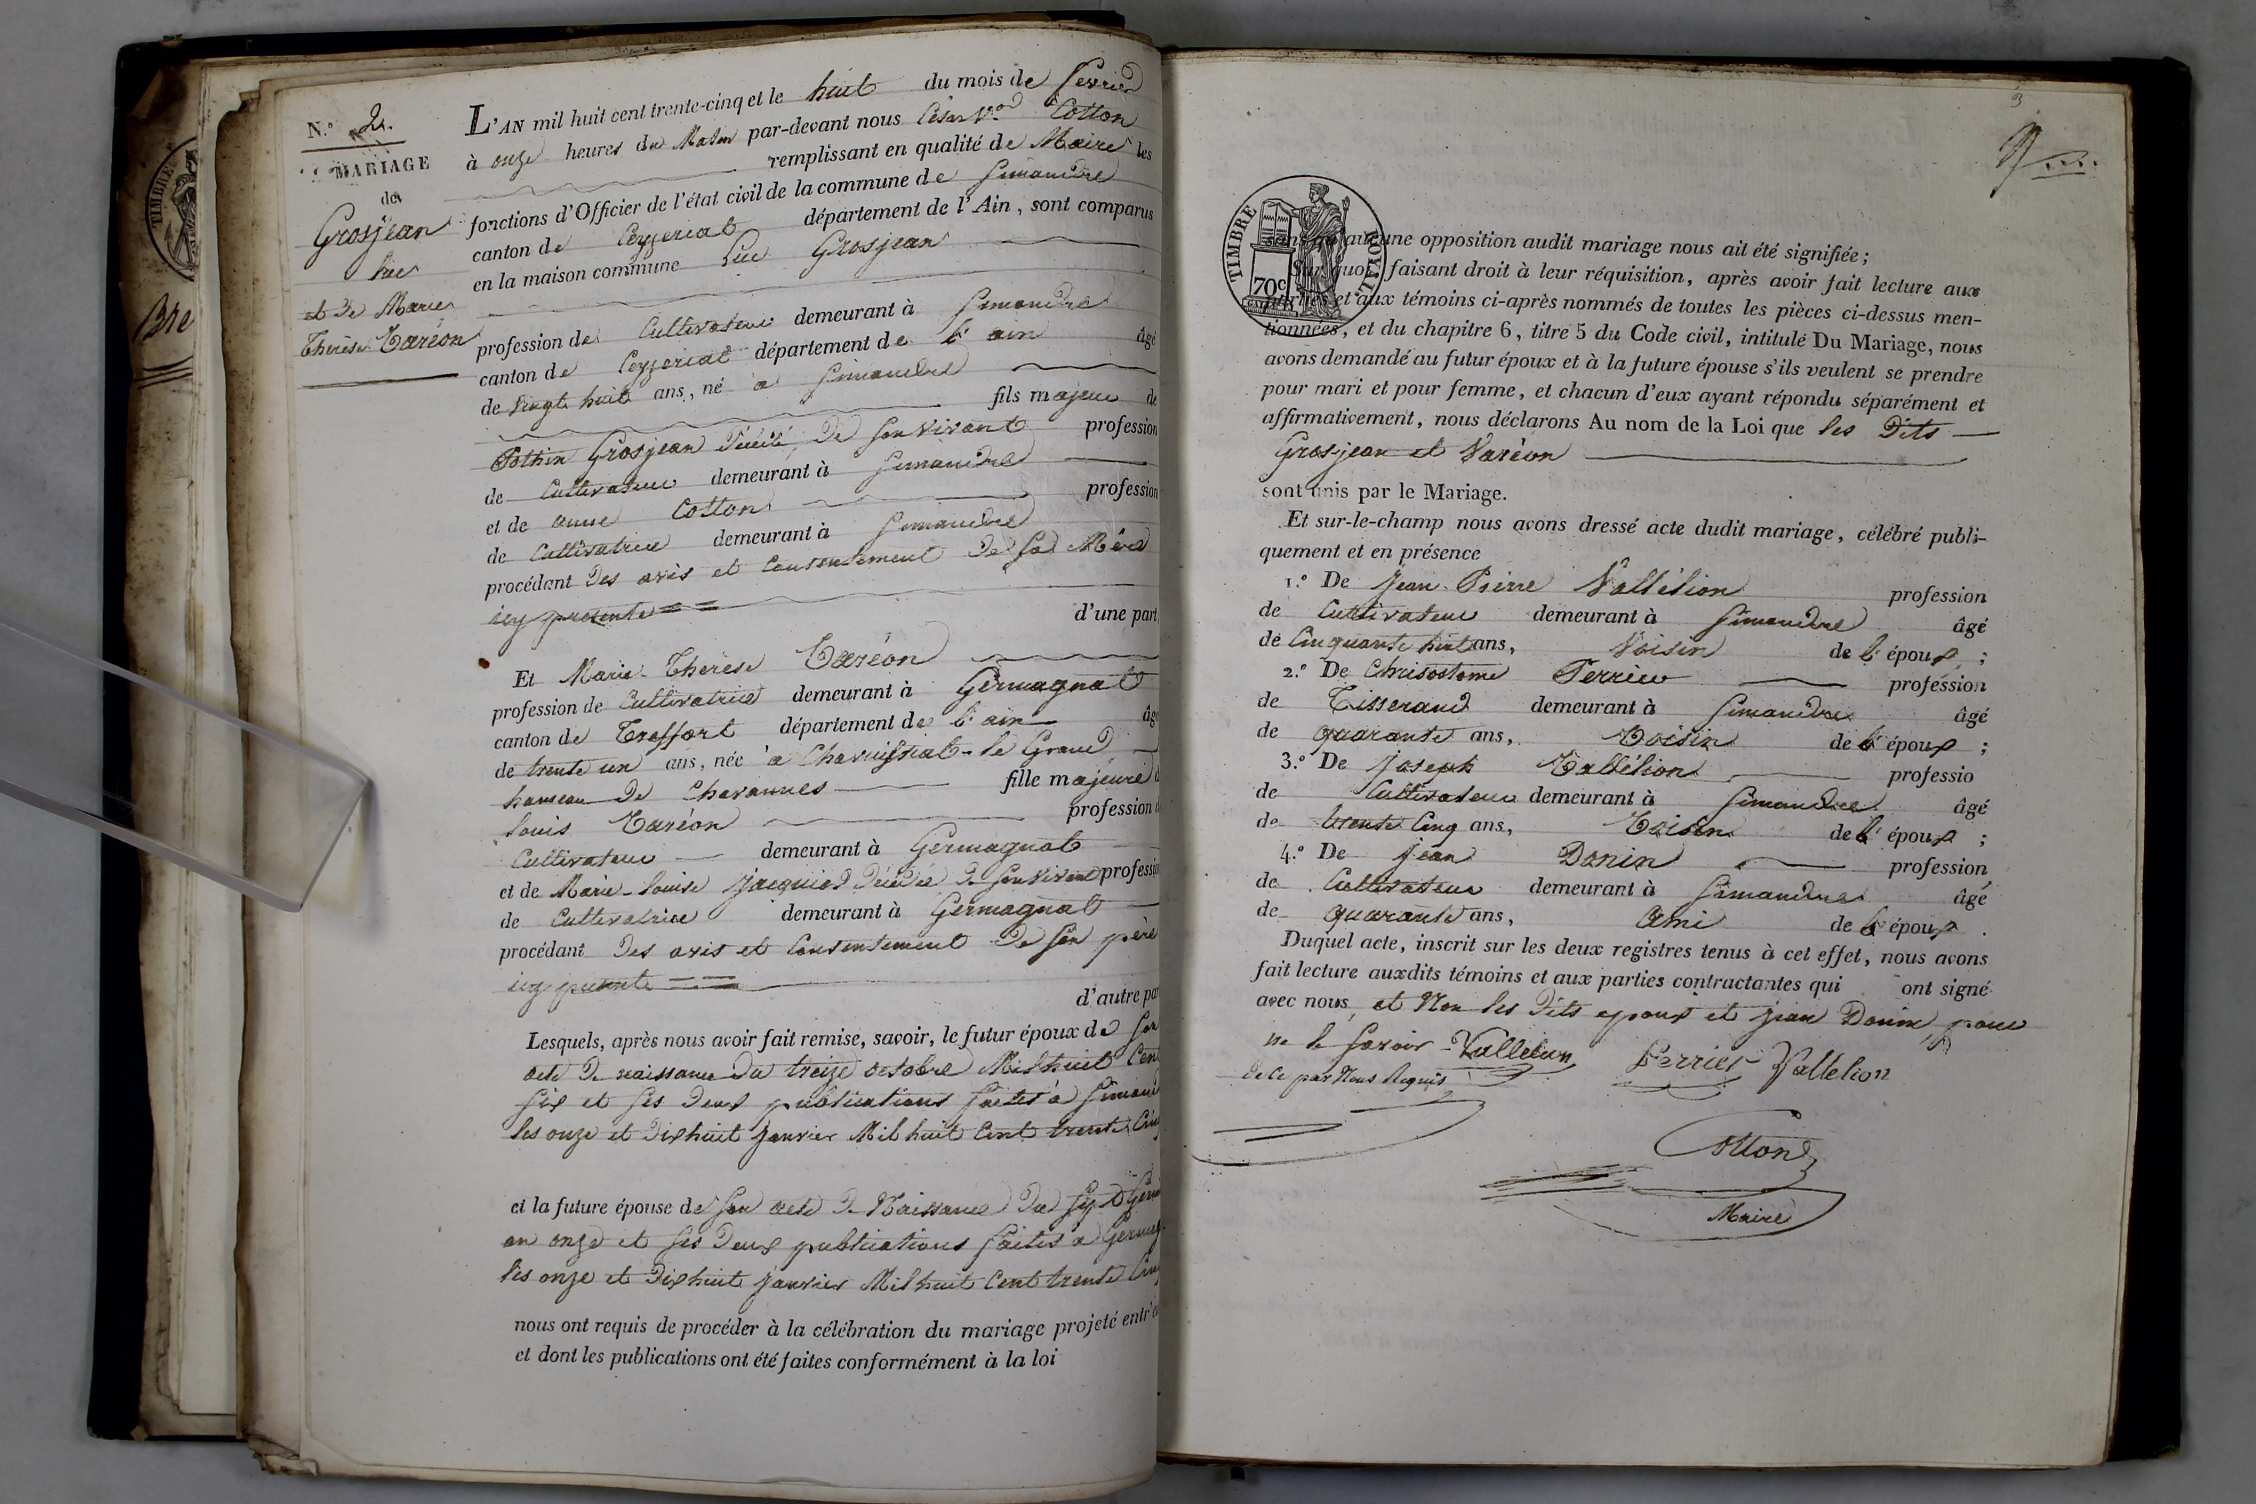 N.º 2.
MARIAGE
de
Grosjean
Luc
et De Marie
Therèse Varéon
L'AN mil huit cent trente-cinq et le huit du mois de fevrier
à onze heures du Matin par-devant nous César Vor Cotton
remplissant en qualité de Maire les
fonctions d'Officier de l'état civil de la commune de Simandre
canton de Ceyzeriat département de l'Ain, sont comparus
en la maison commune Luc Grosjean
profession de Cultivateur demeurant à Simandre
canton de Ceyzeriat département de l'ain âgé
de vingt huit ans, né à Simandre
fils majeur de
Pothin Grosjean Décédé, De Son vivant profession
de Cultivateur demeurant à Simandre
et de anne Cotton profession
de Cultivatrice demeurant à Simandre
procédant Des avis et Consentement De Sa Mère
icy presente d'une part,
Et Marie Therèse Varéon
profession de Cultivatrice demeurant à Germagnat
canton de Treffort département de l'ain âgé
de trente un ans, née à Chavuissiat-le Grand
hameau De Chavannes fille majeure d
Louis Varéon profession d
Cultivateur demeurant à Germagnat
et de Marie-Louise Jacquier Décédée De Son vivant professio
de Cultivatrice demeurant à Germagnat
procédant Des avis et Consentement De Son père
icy presente d'autre par
Lesquels, après nous avoir fait remise, savoir, le futur époux de Son
acte De naissance Du treize octobre Mil huit Cent
Six et Ses Deux publications faites à Simand
les onze et Dix huit Janvier Mil huit Cent trente Cinq
et la future épouse de Son acte De Naissance Du Sept Germ
an onze et Ses Deux publications faites à Germag
les onze et Dix huit Janvier Mil huit Cent trente Cinq
nous ont requis de procéder à la célébration du mariage projeté entr'e
et dont les publications ont été faites conformément à la loi
TIMBRE
Bre
3
TIMBRE ROYAL
70c
sans qu'aucune opposition audit mariage nous ait été signifiée;
Sur quoi, faisant droit à leur réquisition, après avoir fait lecture aux
parties et aux témoins ci-après nommés de toutes les pièces ci-dessus men-
tionnées, et du chapitre 6, titre 5 du Code civil, intitulé Du Mariage, nous
avons demandé au futur époux et à la future épouse s'ils veulent se prendre
pour mari et pour femme, et chacun d'eux ayant répondu séparément et
affirmativement, nous déclarons Au nom de la Loi que les Dits
Grosjean et Varéon
sont unis par le Mariage.
Et sur-le-champ nous avons dressé acte dudit mariage, célébré publi-
quement et en présence
1.º De Jean Pierre Vallélion profession
de Cultivateur demeurant à Simandre âgé
de Cinquante huit ans, Voisin de l'époux;
2.º De Chrisostome Perrier profession
de Tisserand demeurant à Simandre âgé
de quarante ans, Voisin de l'époux;
3.º De Joseph Vallélion professio
de Cultivateur demeurant à Simandre âgé
de trente Cinq ans, Voisin de l'époux;
4.º De Jean Donin profession
de Cultivateur demeurant à Simandre âgé
de quarante ans, ami de l'époux.
Duquel acte, inscrit sur les deux registres tenus à cet effet, nous avons
fait lecture auxdits témoins et aux parties contractantes qui ont signé
avec nous, et Non les Dits epoux et Jean Donin pour
ne le Savoir Vallelion Perrier Vallelion
De Ce par Nous Requis
Cotton
Maire